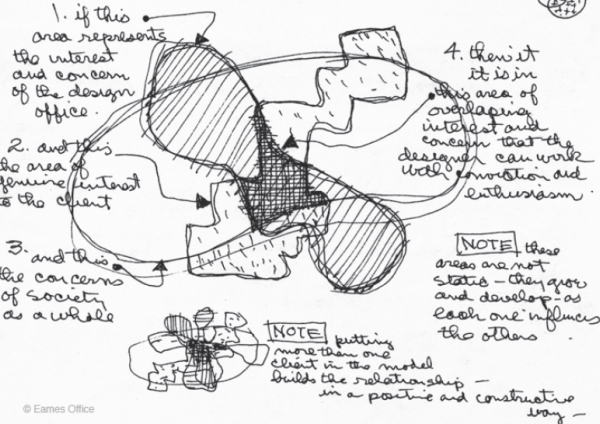 1. if this
area represents
the interest
and concern
of the design
office.
2. and this
the area of
genuine interest
to the client
3. and this
the concerns
of society
as a whole
4. then it
it is in
this area of
overlaping
interest and
concern that the
designer can work
with conviction and
enthusiasm.
NOTE these
areas are not
static - they grow
and develop - as
each one influences
the others
NOTE putting
more than one
client in the model
builds the relationship -
in a positive and constructive
way -
© Eames Office